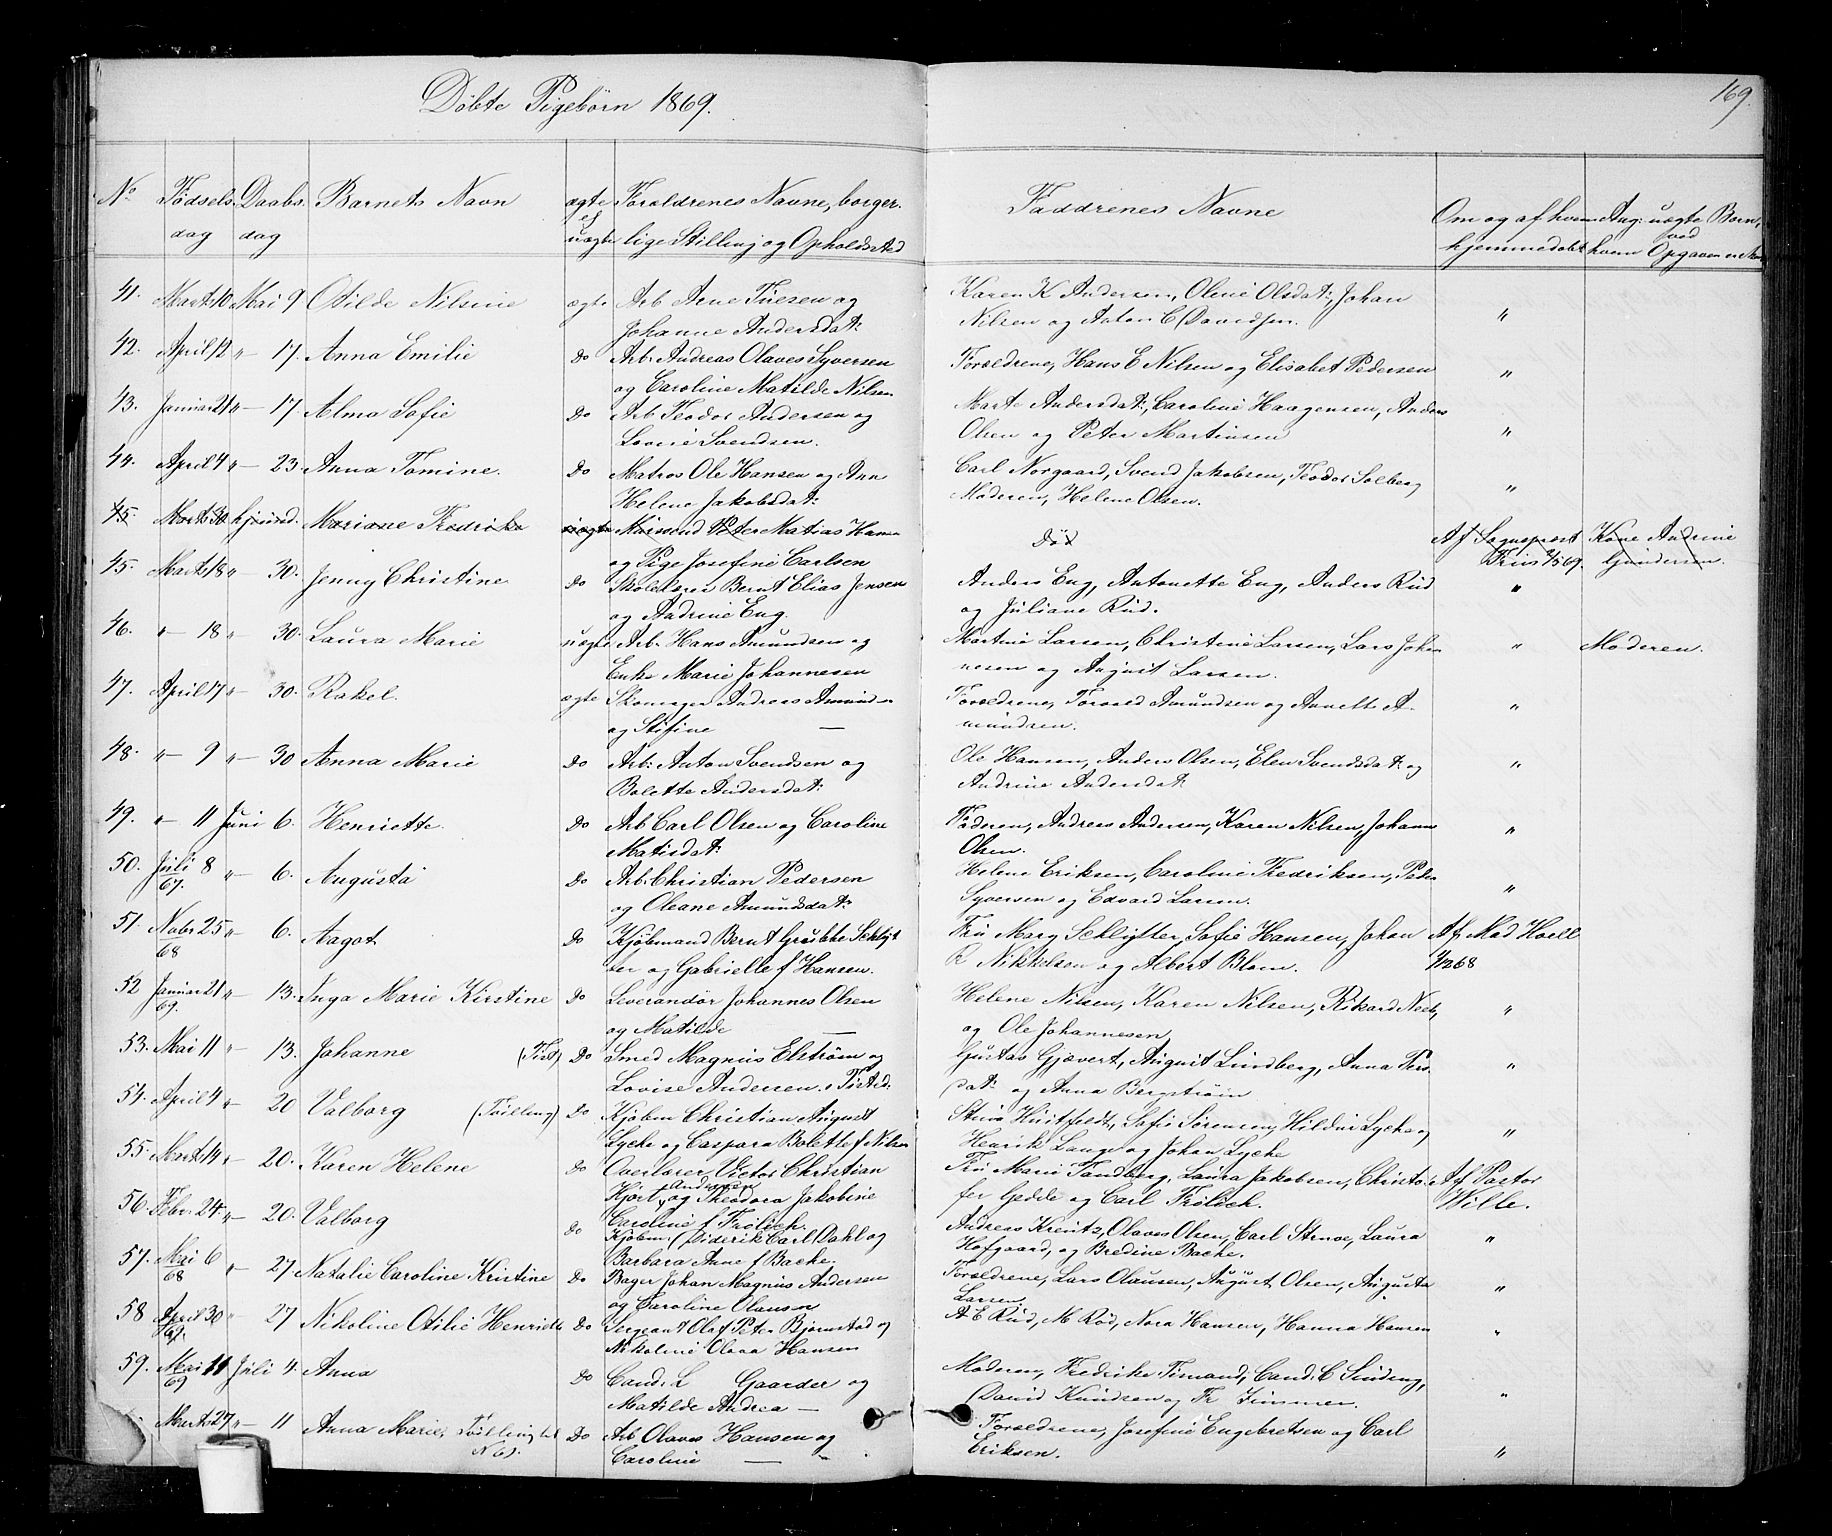 Døbte Pigebørn 1869.
169.
No Fødsels dag Daabs dag Barnets Navn ægte el uægte Forældrenes Navne, borgerlige Stilling og Opholdssted
Faddrenes Navne Om og af hvem hjemmedøbt Ang: uægte Børn, ved hvem Opgaven er
41. Marts 10 Mai 9 Otilde Nilsine ægte Arb Arne Tuesen og
Johanne Andersdat:
Karen K Andersen, Oline Olsdat:, Johan
Nilsen og Anton C Davidsen. "
42. April 12 " 17. Anna Emilie Do Arb: Andreas Olaves Syversen
og Caroline Matilde Nilsen
Forældrene, Hans E Nilsen og Elisabet Pedersen "
43. Januar 21 " 17. Alma Sofie Do Arb Teodor Andersen og
Lovise Svendsen.
Marte Andersdat:, Caroline Haagensen, Anders
Olsen og Peter Martinsen "
44. April 4 " 23. Anna Tomine. Do Matros Ole Hansen og Ann
Helene Jakobsdat:
Carl Norgaard, Svend Jakobsen, Teodor Solberg
Moderen, Helene Olsen. "
45. Marts 30 hjemmd. Mariane Fredrike uægte Murmand Peter Matias Hansen
og Pige Josefine Carlsen
Død Af Sogneprest
Friis 2/5 69. Kone Andrine
Gundersen.
45. Marts 18 " 30. Jenny Christine Do Skolelærer Bernt Elias Jensen
og Andrine Eng.
Anders Eng, Antonette Eng, Anders Rud
og Juliane Rud. "
46. " 18 " 30. Laura Marie uægte Arb. Hans Amundsen og
Enke Marie Johannesen
Martine Larsen, Christine Larsen, Lars Johan
nesen og August Larsen. " Moderen.
47. April 17 " 30. Rakel. ægte Skomager Andreas Amunds
og Stefine —
Forældrene, Torvald Amundsen og Annette A-
mundsen. "
48. " 9 " 30 Anna Marie Do Arb: Anton Svendsen og
Bolette Andersdat:
Ole Hansen, Anders Olsen, Elen Svendsdat: og
Andrine Andersdat "
49. " 11 Juni 6. Henriette. Do Arb Carl Olsen og Caroline
Matisdat:
Faderen, Andreas Andersen, Karen Nilsen, Johanne
Olsen. "
50. Juli 8 67. " 6. Augusta Do Arb: Christian Pedersen
og Oleane Amundsdat:
Helene Eriksen, Caroline Fredriksen, Peder
Syversen og Edvard Larsen. "
51. Nobr 25 68 " 6. Aagot Do Kjøbmand Bernt Grubbe Schlyt
ter og Gabrielle f Hansen.
Fru Mary Schlytter, Sofie Hansen, Johan
R Nikkelsen og Albert Blom. Af Mad Hoell
1/12 68
52 Januar 21 69. " 13. Inga Marie Kirstine Do Leverandør Johannes Olsen
og Matilde —
Helene Nilsen, Karen Nilsen, Rikard
og Ole Johannesen "
53. Mai 11 " 13. Johanne (Tist) Do Smed Magnus Elstrøm og
Lovise Andersen. i Tisted.
Gustav Gjævert, August Lindberg, Anna Pers
dat: og Anna Bergstrøm "
54. April 4 " 20 Valborg (Tvilling) Do Kjøbm Christian August
Lycke og Caspara Bolette f Nilsen
Stina Huitfeldt, Sofie Sørensen, Huldur Lycke og
Henrik Lange og Johan Lycke "
55. Marts 14 " 20. Karen Helene Do Overlærer Victor Christian
Kjørt, og Andresen Theodora Jakobine
Caroline f Frølich.
Fru Marie Tandberg, Laura Jakobsen, Christo
fer Gedde og Carl Frølich. Af Pastor
Wille.
56. Febr. 24. " 20. Valborg Do Kjøbm. Diderik Carl Dahl og
Barbara Anne f Backe.
Andreas Kreutz, Olaves Olsen, Carl Struve, Laura
Hofgaard, og Bredine Backe. "
57. Mai 6 68 " 27. Natalie Caroline Kristine Do Bager Johan Magnus Andersen
og Caroline Olausen
Forældrene, Lars Olausen, August Olsen, Augusta
Larsen. "
58 April 30 69. " 27 Nikoline Otilie Henriette Do Sergeant Olaf Peter Bjørnstad og
Nikoline Olava Hansen
A E Rud, M Rød, Nora Hansen, Hanna Hansen "
59. Mai 11 69 Juli 4. Anna Do Cand: L Gaarder og
Matilde Andrea —
Moderen, Fredrike Timand, Cand. C Sinding,
David Knudsen og Fr Simmer. "
Marts 27 " 11 Anna Marie, Tvilling til
No 61. Do Arb Olaves Hansen og
Caroline —
Forældrene, Josefine Engebretsen og Carl
Eriksen. "